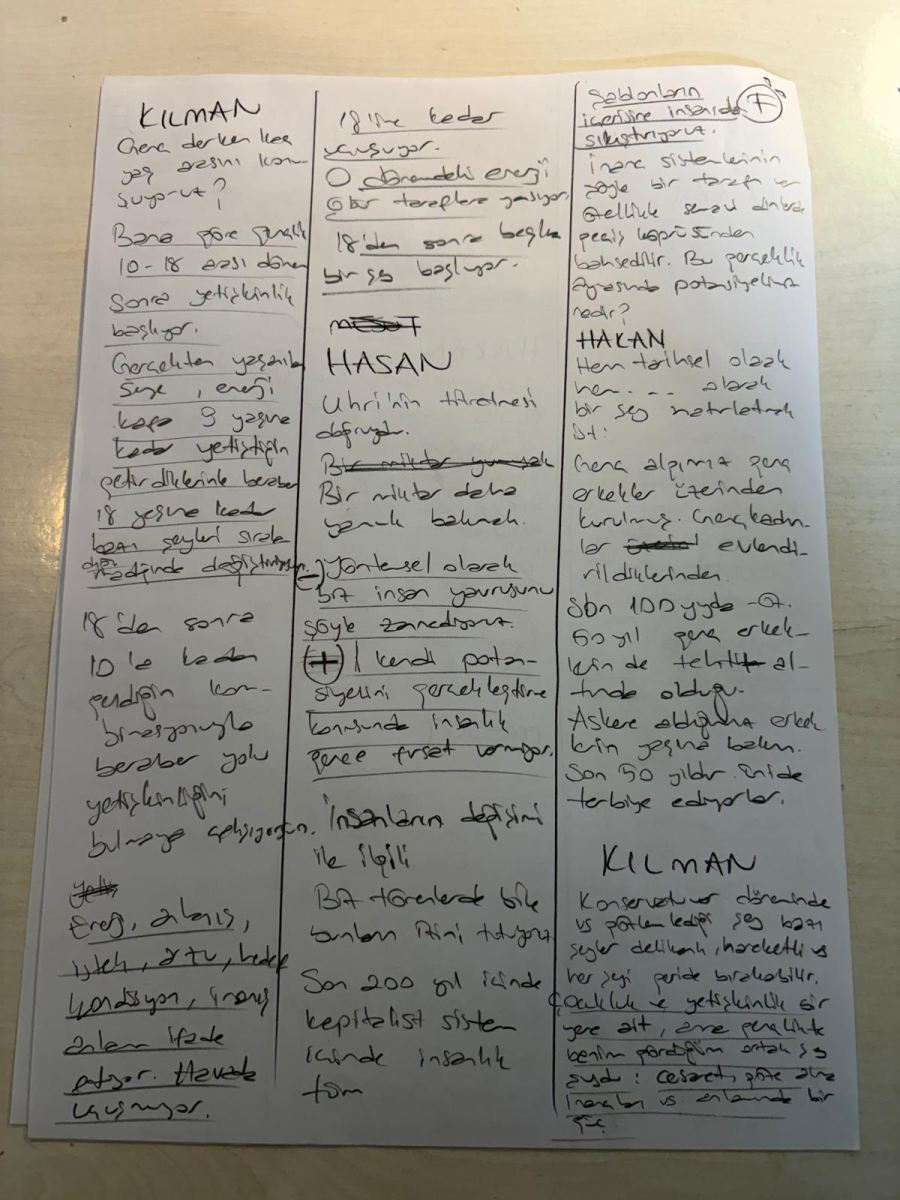 KILMAN
Genç derken kaç
yaş arasını kon-
uşuyoruz?
Bana göre gençlik
10-18 arası dönem
Sonra yetişkinlik
başlıyor.
Gerçekten yaşanılan
seye, enerji
9 yaşına
kadar yetiştiğin
getirdiklerinle beraber
18 yaşına kadar
bazı şeyleri
değiştiriyorsun.
18'den sonra
10'a kadar
geldiğin kom-
binasyonuyla
beraber yolu
yetişkinliğini
bulmaya çalışıyorsun.
Enerji, anlayış,
istek, arzu, hedef
kondisyon, inanış
anlam ifade
ediyor. Havada
uçuşmuyor.
18'ine kadar
uçuşuyor.
O dönemdeki enerji
öbür taraflara yansıyor.
18'den sonra başka
bir şey başlıyor.
HASAN
doğruydu.
Bir miktar daha
bakmak.
(-) Yöntemsel olarak
biz insan yavrusunu
şöyle zannediyoruz.
(+) kendi potan-
siyelini gerçekleştirme
konusunda insanlık
gence fırsat vermiyor.
İnsanların değişimi
ile ilgili
Biz törenlerde bile
bunların izini tutuyoruz
Son 200 yıl içinde
kapitalist sistem
içinde insanlık
tüm
Şablonların
içerisine insanıda
sıkıştırıyoruz.
İnanç sistemlerinin
şöyle bir tarafı var
özellikle semavi dinlerde
geçiş köprüsünden
bahsedilir. Bu gerçeklik
arasında potansiyelimiz
nedir?
HAKAN
Hem tarihsel olarak
hem . . . olarak
bir şey hatırlatmak
ist:
Genç algımız genç
erkekler üzerinden
kurulmuş. Genç kadın-
lar evlendi-
rildiklerinden.
Son 100 yıl
50 yıl genç erkek-
lerin de tehdit al-
tında olduğu.
Askere aldığımız erkek
lerin yaşına bakın.
Son 50 yıldır
terbiye ediyorlar.
KILMAN
döneminde
şey bazı
şeyler delikanlı, hareketli ve
her şeyi geride bırakabilir.
Çocukluk ve yetişkinlik bir
yere ait, ama gençlikte
benim gördüğüm ortak şey
şuydu: cesaret, göze alma
inançları vs anlamında bir
güç